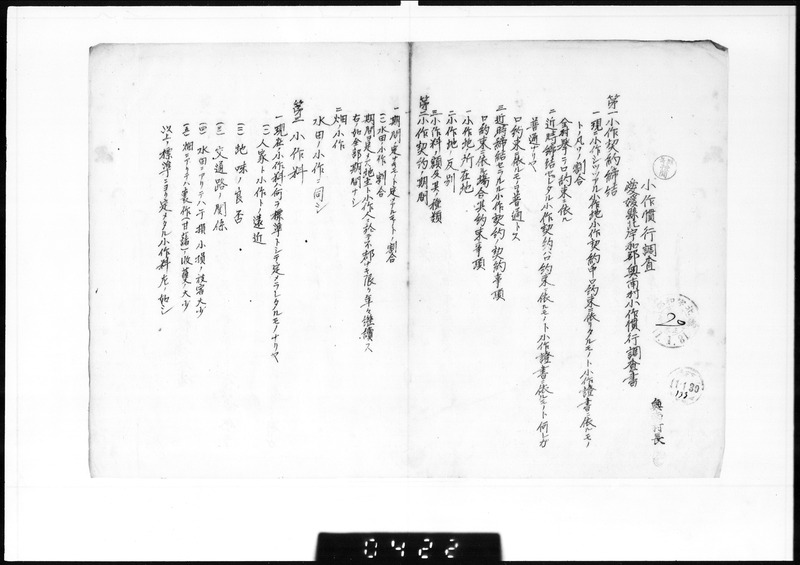 小作慣行調査
愛媛県北宇和郡奥南村小作慣行調査書
村長
20
11.1.30
第一 小作契約締結
一現ニ小作シツツアル小作地小作契約中口約束ニ依リタルモノト小作證書ニ依ルモノ
トノ凡ソノ割合
全村挙ゲテ口約束ニ依ル
二近時締結セラルル小作契約ハ口約束ニ依ルモノト小作證書ニ依ルモノト何レガ
普通ナリヤ
口約束ニ依ルヲ普通トス
三近時締結セラルル小作契約ノ契約事項
口約束ニ依ル場合其約束事項
一小作地所在地
二小作地反別
三小作料額及其種類
第二 小作契約ノ期間
一期間ノ定メアルモノト定メナキモノトノ割合
(一)水田小作ノ割合
期間ノ定メナク地主小作人ニ於テ不都合ナキ限リ年々継続ス
右ノ如全部期間ナシ
二畑ノ小作
水田ノ小作ニ同シ
第三 小作料
一現在ノ小作料ハ何ヲ標準トシテ定メラレタルモノナリヤ
(一)人家ト小作トノ遠近
(二)地味ノ良否
(三)交通路ノ関係
(四)水田ニアリテハ干損水損ノ被害大少
(五)畑ニアリテハ裏作(甘藷)収穫ノ大少
以上ノ標準ニヨリ定メタル小作料左ノ如シ
0422